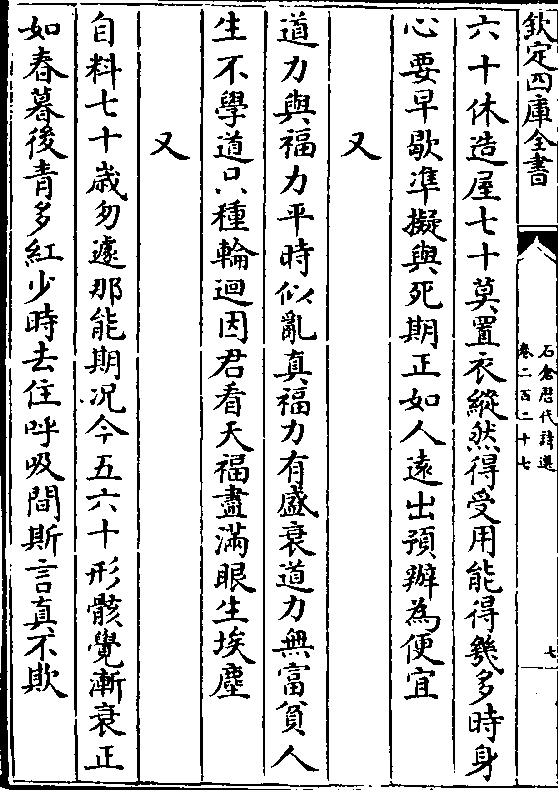 欽定四庫全書
石倉歷代詩選
卷二百二十七
七
六十休造屋七十莫置衣縱然得受用能得幾多時身
心要早歇準擬與死期正如人遠出預辦為便宜
又
道力與福力平時似亂真福力有盛衰道力無富貧人
生不學道只種輪迴因君看天福盡滿眼生埃塵
又
自料七十歳勿遽那能期况今五六十形骸覺漸衰正
如春暮後青多紅少時去住呼吸間斯言真不欺